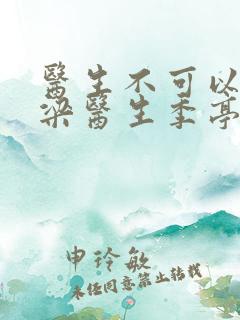 醫生不可以
梁醫生季亭
申玲敏
未任同意禁止转载